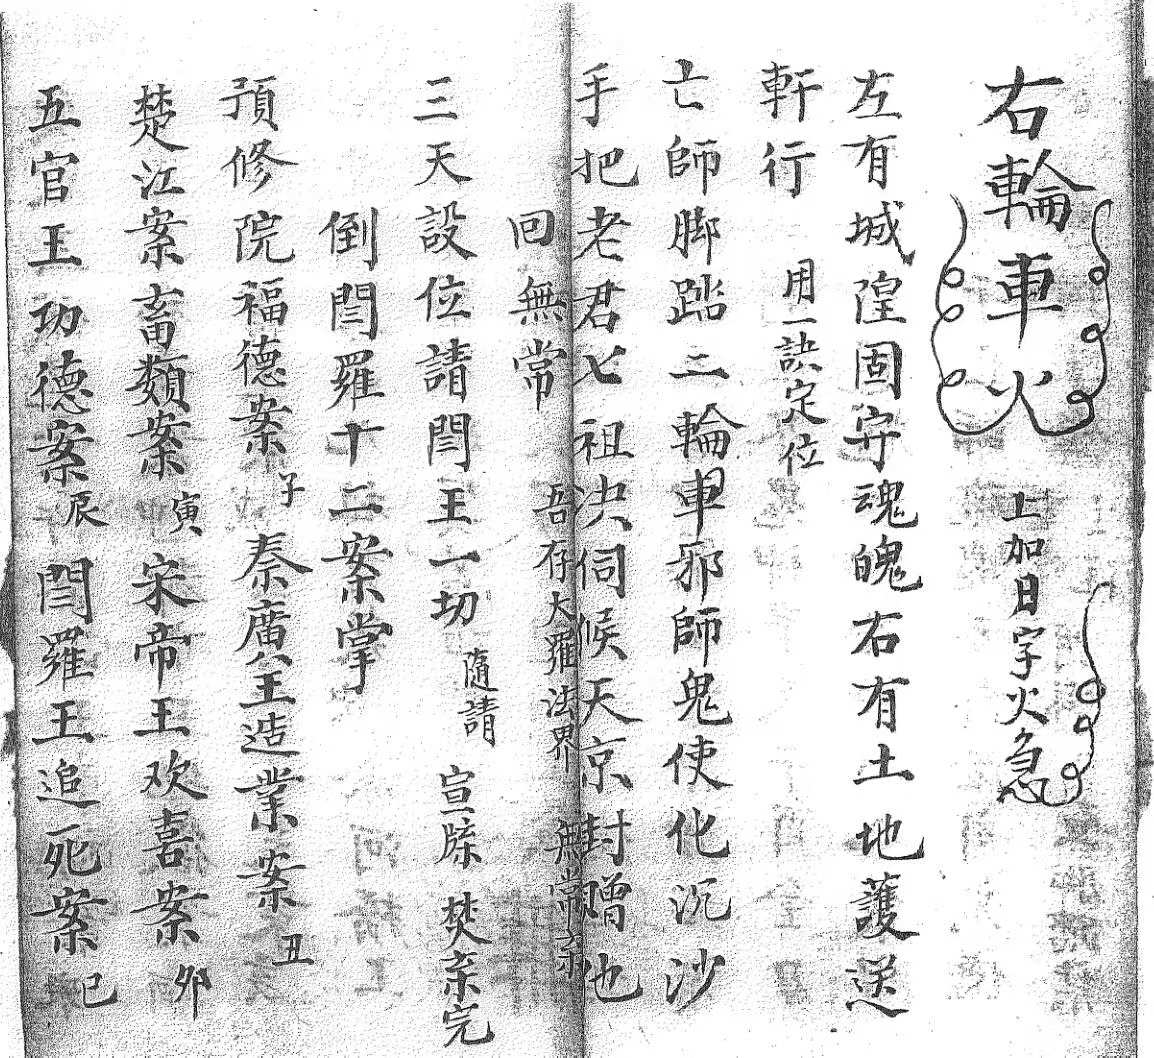 右輪車火 上加日字火急
左有城隍固守魂魄右有土地護送
軒行 用一訣定位
亡師脚踏二輪車邪師鬼使化沉沙
手把老君七祖决伺候天京封贈他
回無常 吾存大羅法界 無常京
三天設位請閆王一切 隨請 宣牒 焚京完
倒閆羅十二案掌
預修院福德案子 秦廣王造業案丑
楚江案畜類案寅 宋帝王欢喜案卯
五官王功德案辰 閆羅王追死案巳